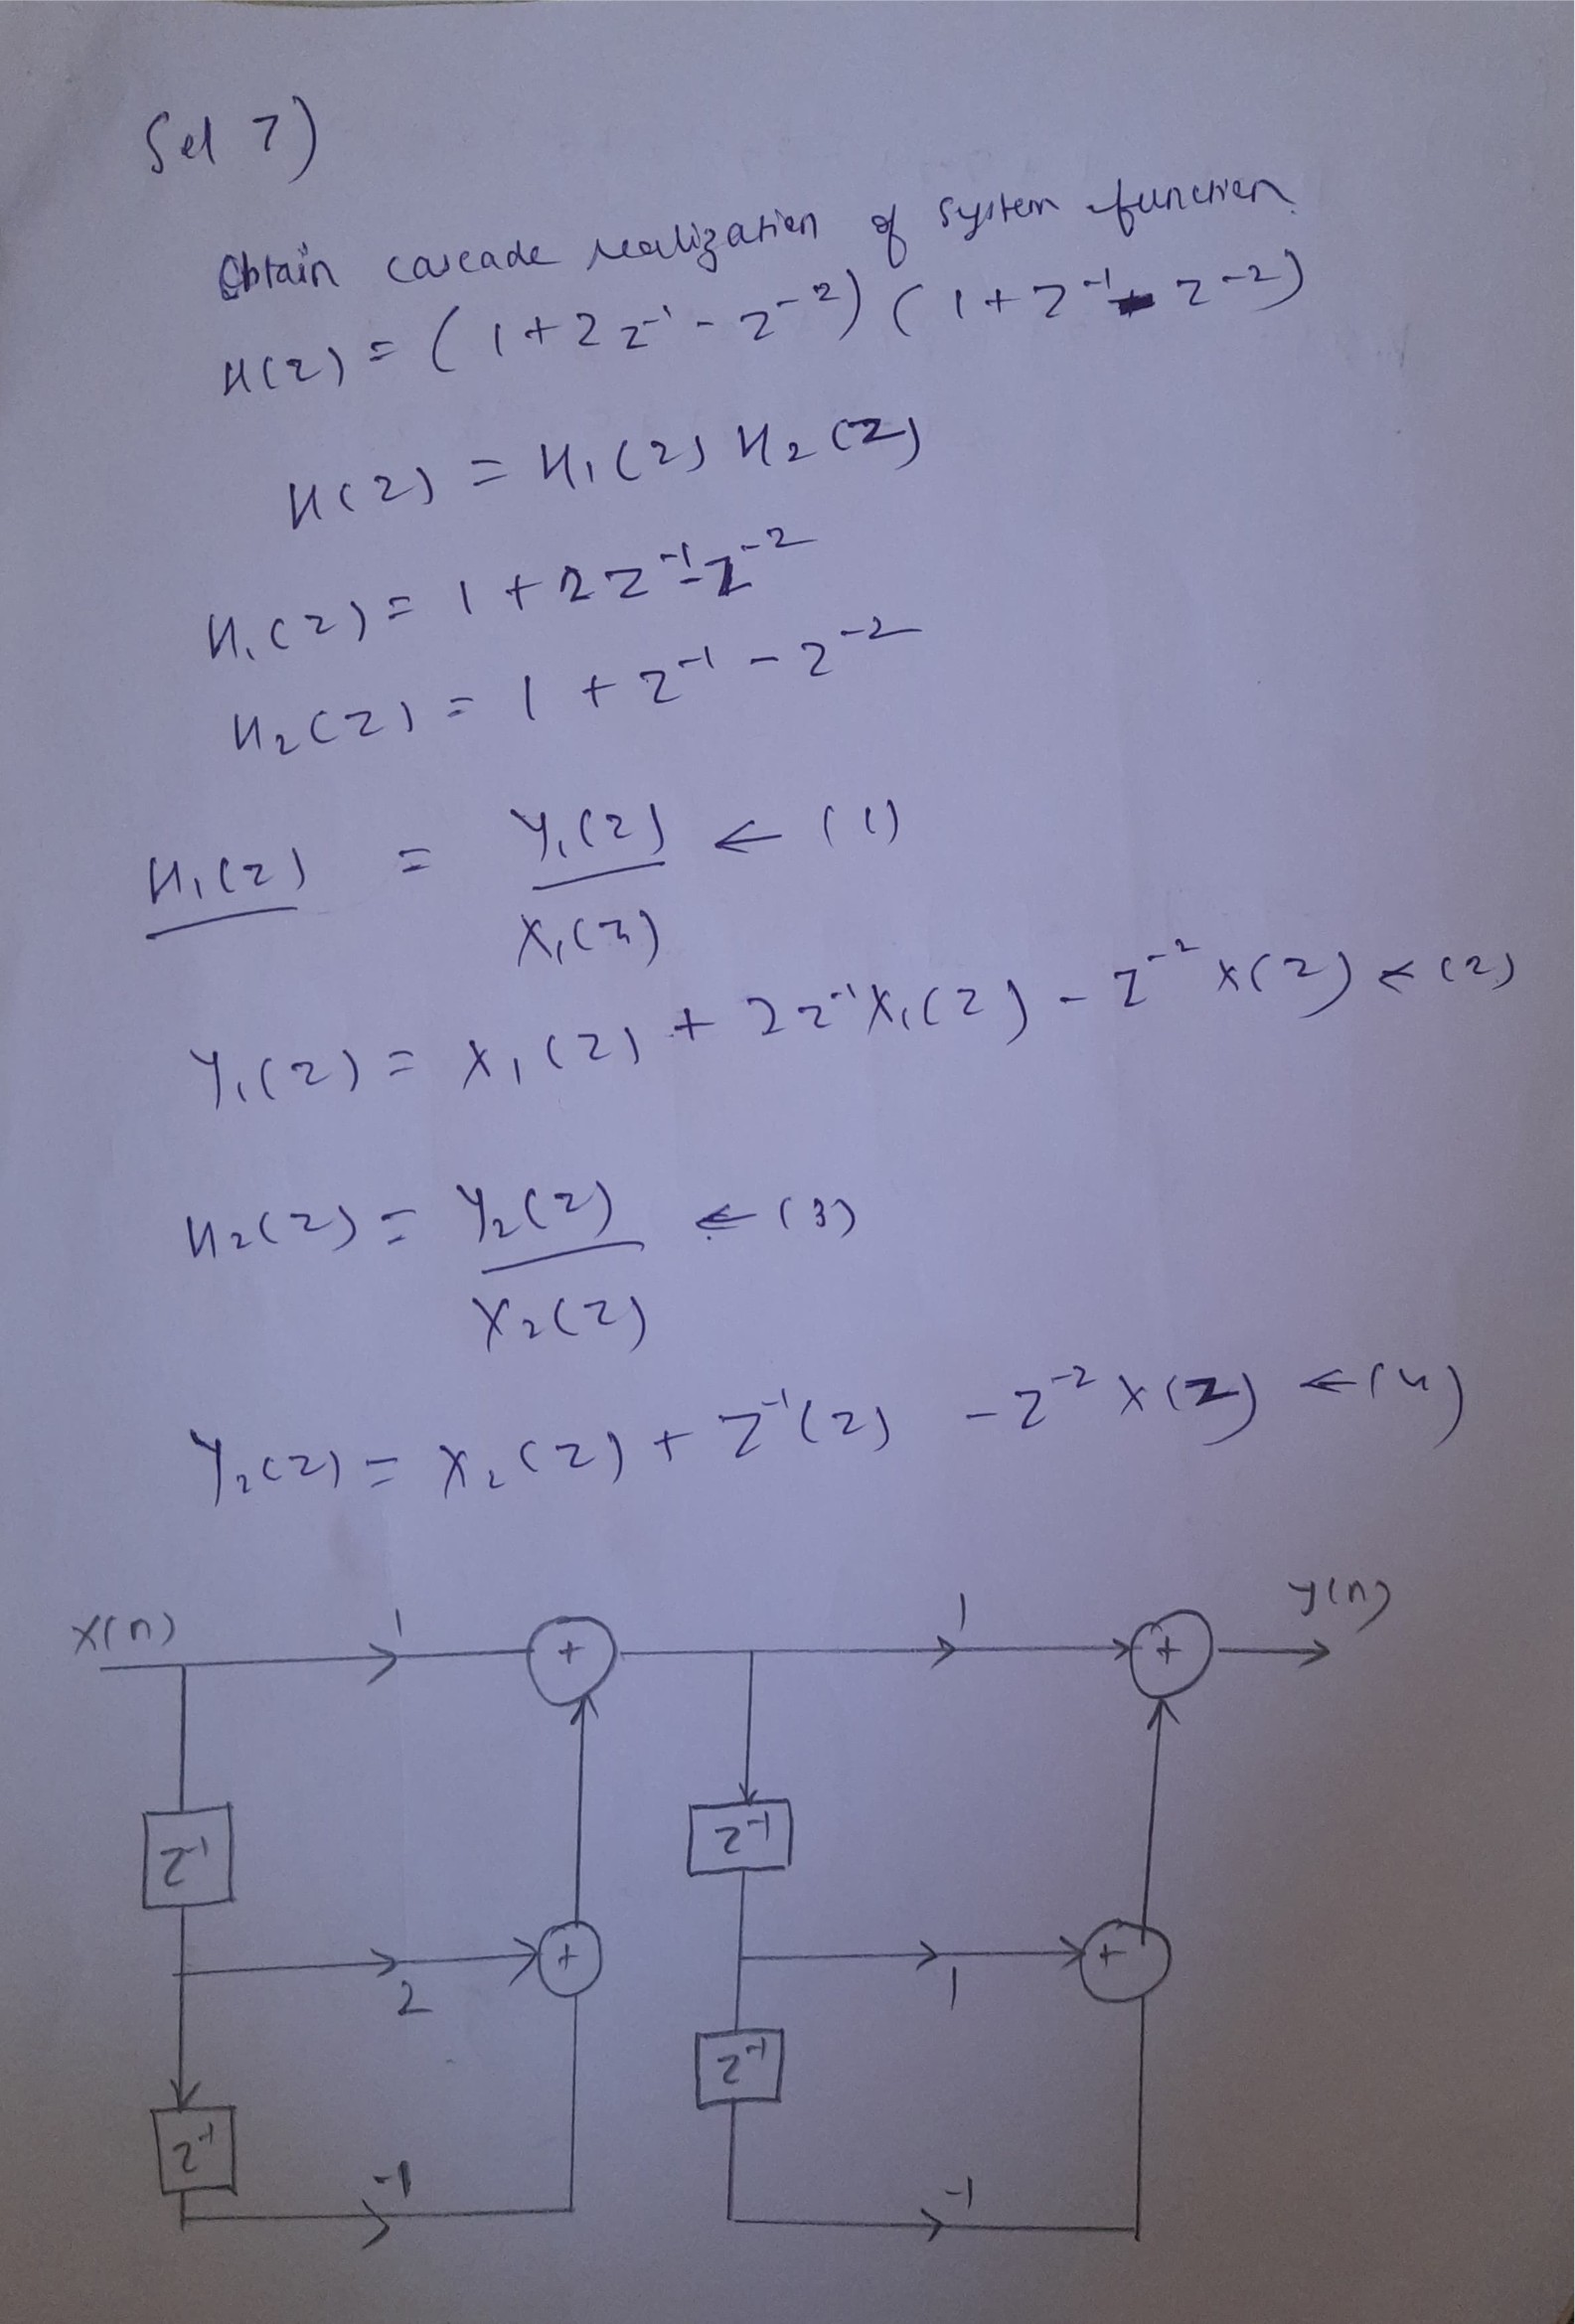 Sol 7)
Obtain cascade realization of system function.
H(z) = (1+2z⁻¹-z⁻²)(1+z⁻¹-z⁻²)
H(z) = H₁(z) H₂(z)
H₁(z) = 1+2z⁻¹-z⁻²
H₂(z) = 1+z⁻¹-z⁻²
H₁(z) = Y₁(z) ← (1)
X₁(z)
Y₁(z) = X₁(z) + 2z⁻¹X₁(z) - z⁻² X(z) ← (2)
H₂(z) = Y₂(z) ← (3)
X₂(z)
Y₂(z) = X₂(z) + z⁻¹(z) - z⁻² X(z) ← (4)
x(n) 1 + 1 + y(n)
z⁻¹ z⁻¹
2 + 1 +
z⁻¹ z⁻¹
-1 -1